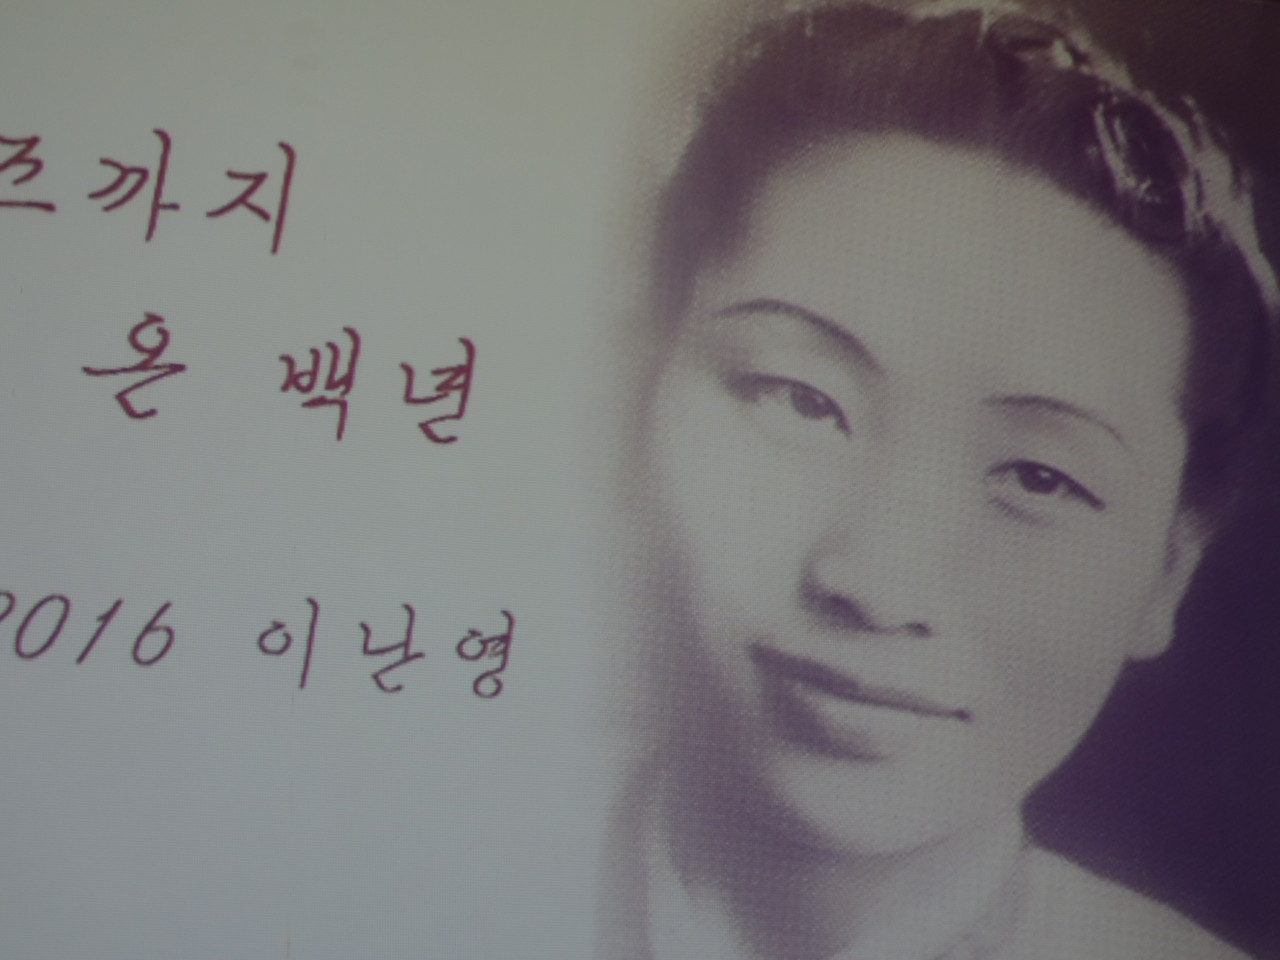 즈까지
온 백년
2016 이난영